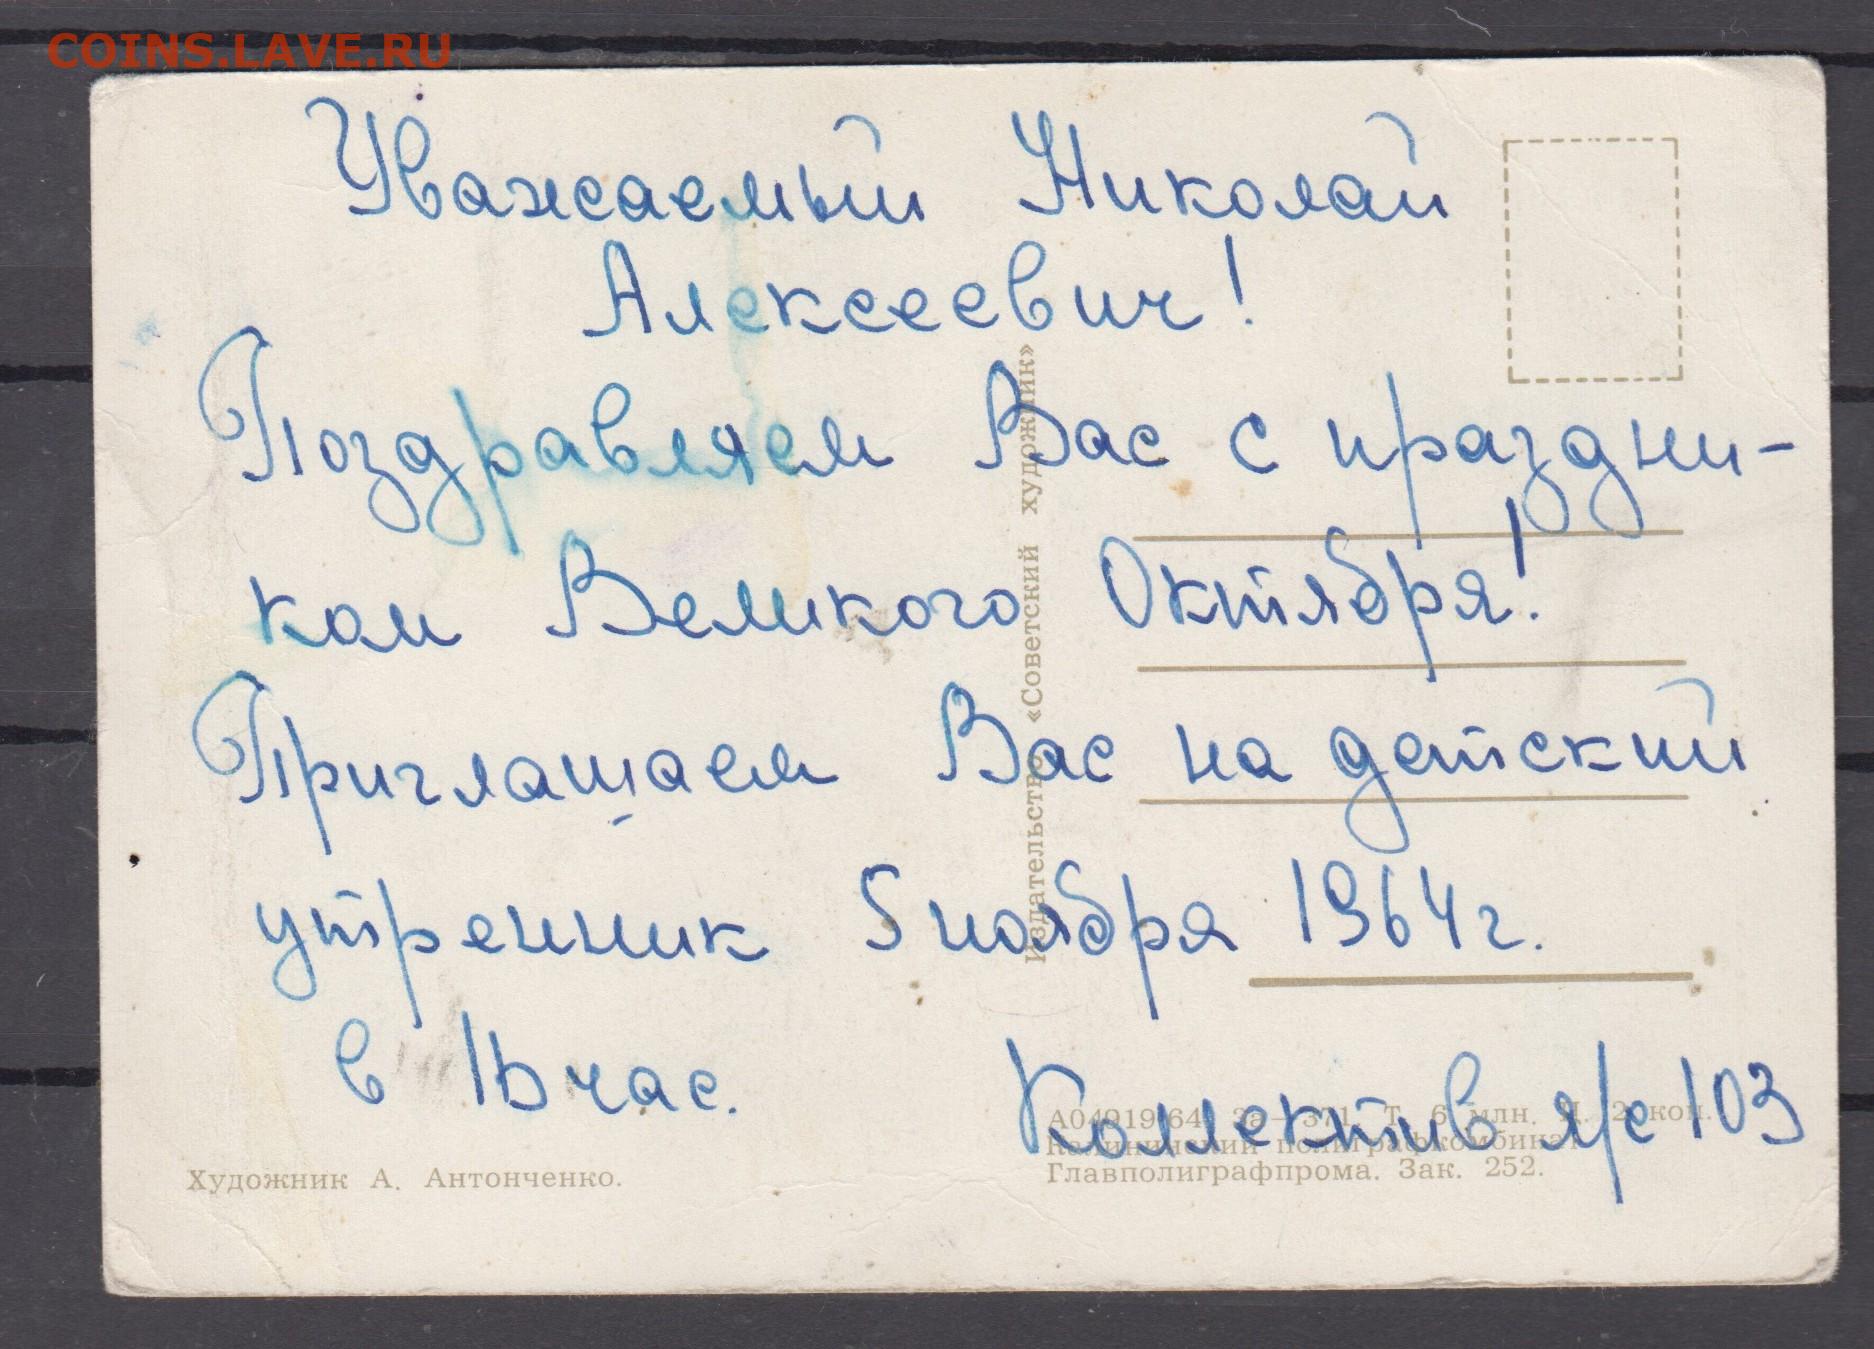 COINS.LAVE.RU
Уважаемый Николай
Алексеевич!
Поздравляем Вас с праздни-
ком Великого Октября!
Приглашаем Вас на детский
утренник 5 ноября 1964 г.
в 16 час.
Коллектив я/с 103
Издательство «Советский художник»
Художник А. Антонченко.
А04919 64 За—371. Т. 6 млн. Ц. 2 коп.
Калининский полиграфкомбинат
Главполиграфпрома. Зак. 252.